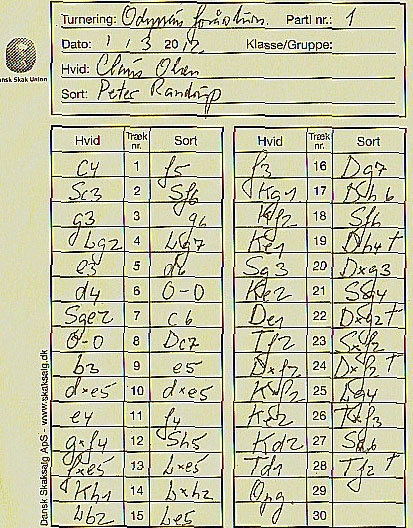 Turnering: Odysseus forårsturn. Parti nr.: 1
Dato: 1 / 3 2012 Klasse/Gruppe:
Hvid: Claus Olsen
Sort: Peter Randrup
Dansk Skak Union
Hvid Træk nr. Sort Hvid Træk nr. Sort
c4 1 f5 f3 16 Dg7
Sc3 2 Sf6 Kg1 17 Dh6
g3 3 g6 Kf2 18 Sf6
Lg2 4 Lg7 Ke1 19 Dh4†
e3 5 d6 Sg3 20 Dxg3
d4 6 0-0 Ke2 21 Sg4
Sge2 7 c6 De1 22 Dxg2†
0-0 8 Dc7 Tf2 23 Sxf2
b3 9 e5 Dxf2 24 Dxf2†
dxe5 10 dxe5 Kxf2 25 Lg4
e4 11 f4 26 Txf3
gxf4 12 Sh5 Kd2 27
fxe5 13 Lxe5 Td1 28 Tf2†
Kh1 14 Lxh2 Opg. 29
Lb2 15 Le5 30
Dansk Skaksalg ApS - www.skaksalg.dk